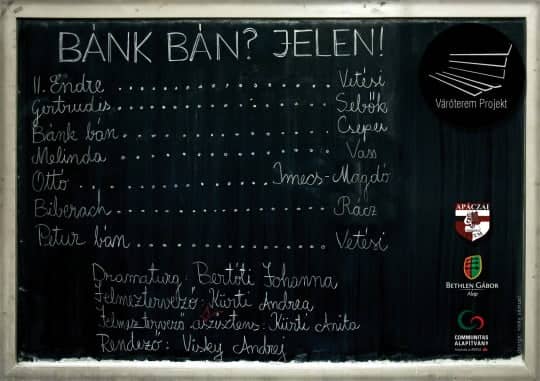 BÁNK BÁN? JELEN!
II. Endre .................. Vetési
Gertrudis .................. Sebők
Bánk bán .................. Csepei
Melinda .................. Vass
Ottó .................. Imecs-Magdó
Biberach .................. Rácz
Petur bán .................. Vetési
Dramaturg: Bertóti Johanna
Jelmeztervező: Kürti Andrea
Jelmeztervező asszisztens: Kürti Anita
Rendező: Visky Andrej
Váróterem Projekt
APÁCZAI
BETHLEN GÁBOR
Alap
COMMUNITAS
ALAPÍTVÁNY